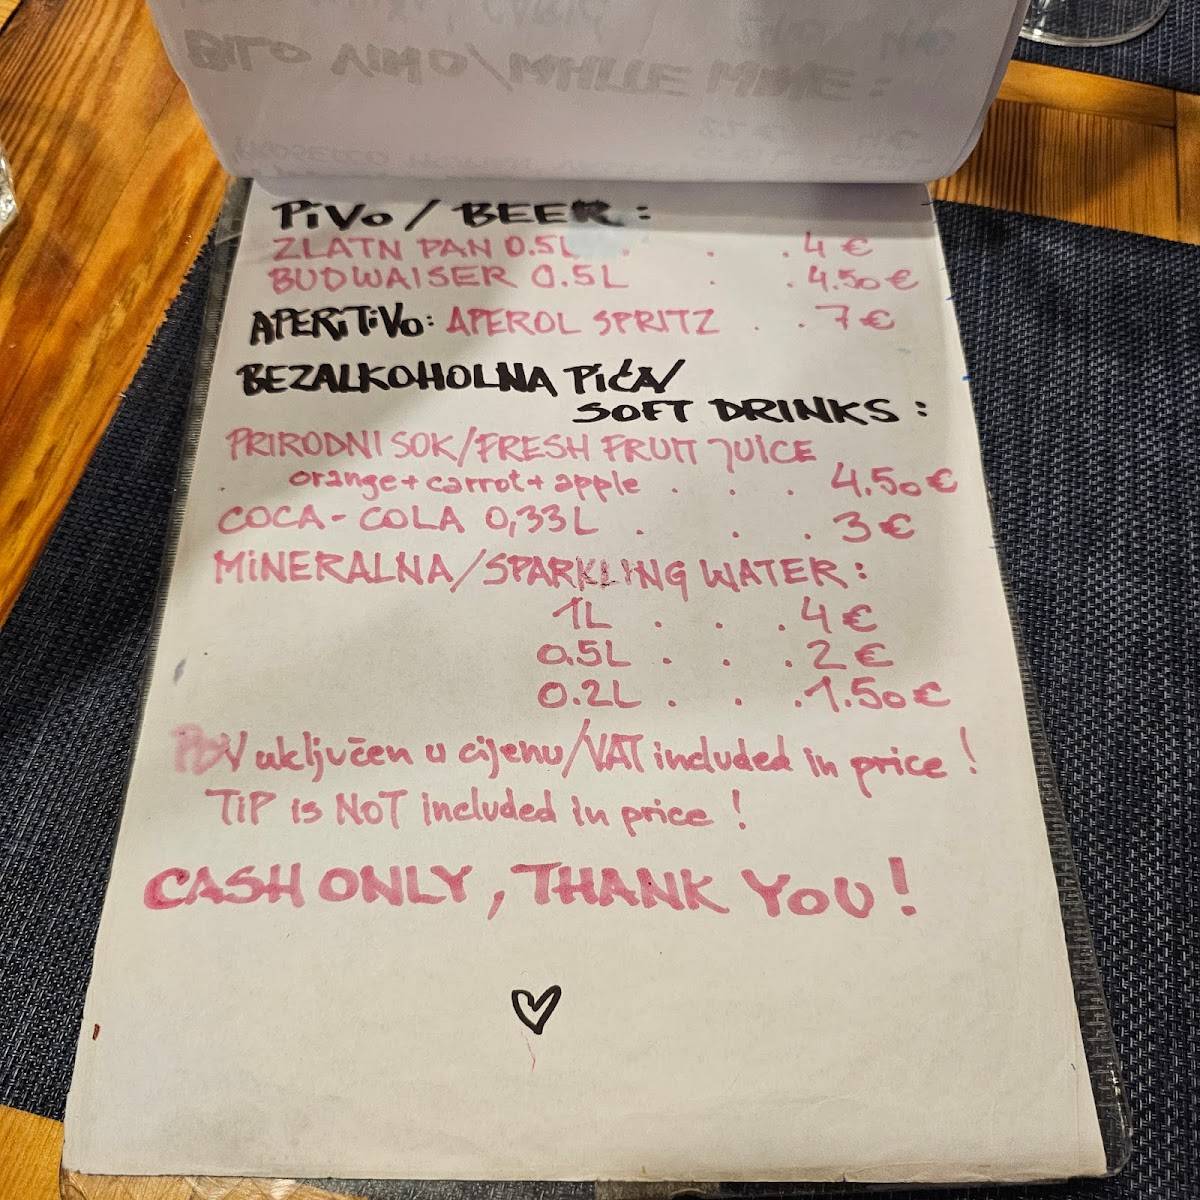 BILO VINO/WHITE WINE:
PIVO / BEER:
ZLATN PAN 0.5L . . . 4 €
BUDWAISER 0.5L . . 4.50 €
APERITIVO: APEROL SPRITZ . . 7 €
BEZALKOHOLNA PIĆA/
SOFT DRINKS:
PRIRODNI SOK/FRESH FRUIT JUICE
orange+carrot+apple . . . 4.50 €
COCA-COLA 0,33L . . . 3 €
MINERALNA/SPARKLING WATER:
1L . . . 4 €
0.5L . . . 2 €
0.2L . . . 1.50 €
PDV uključen u cijenu/VAT included in price!
TIP is NOT included in price!
CASH ONLY, THANK YOU!